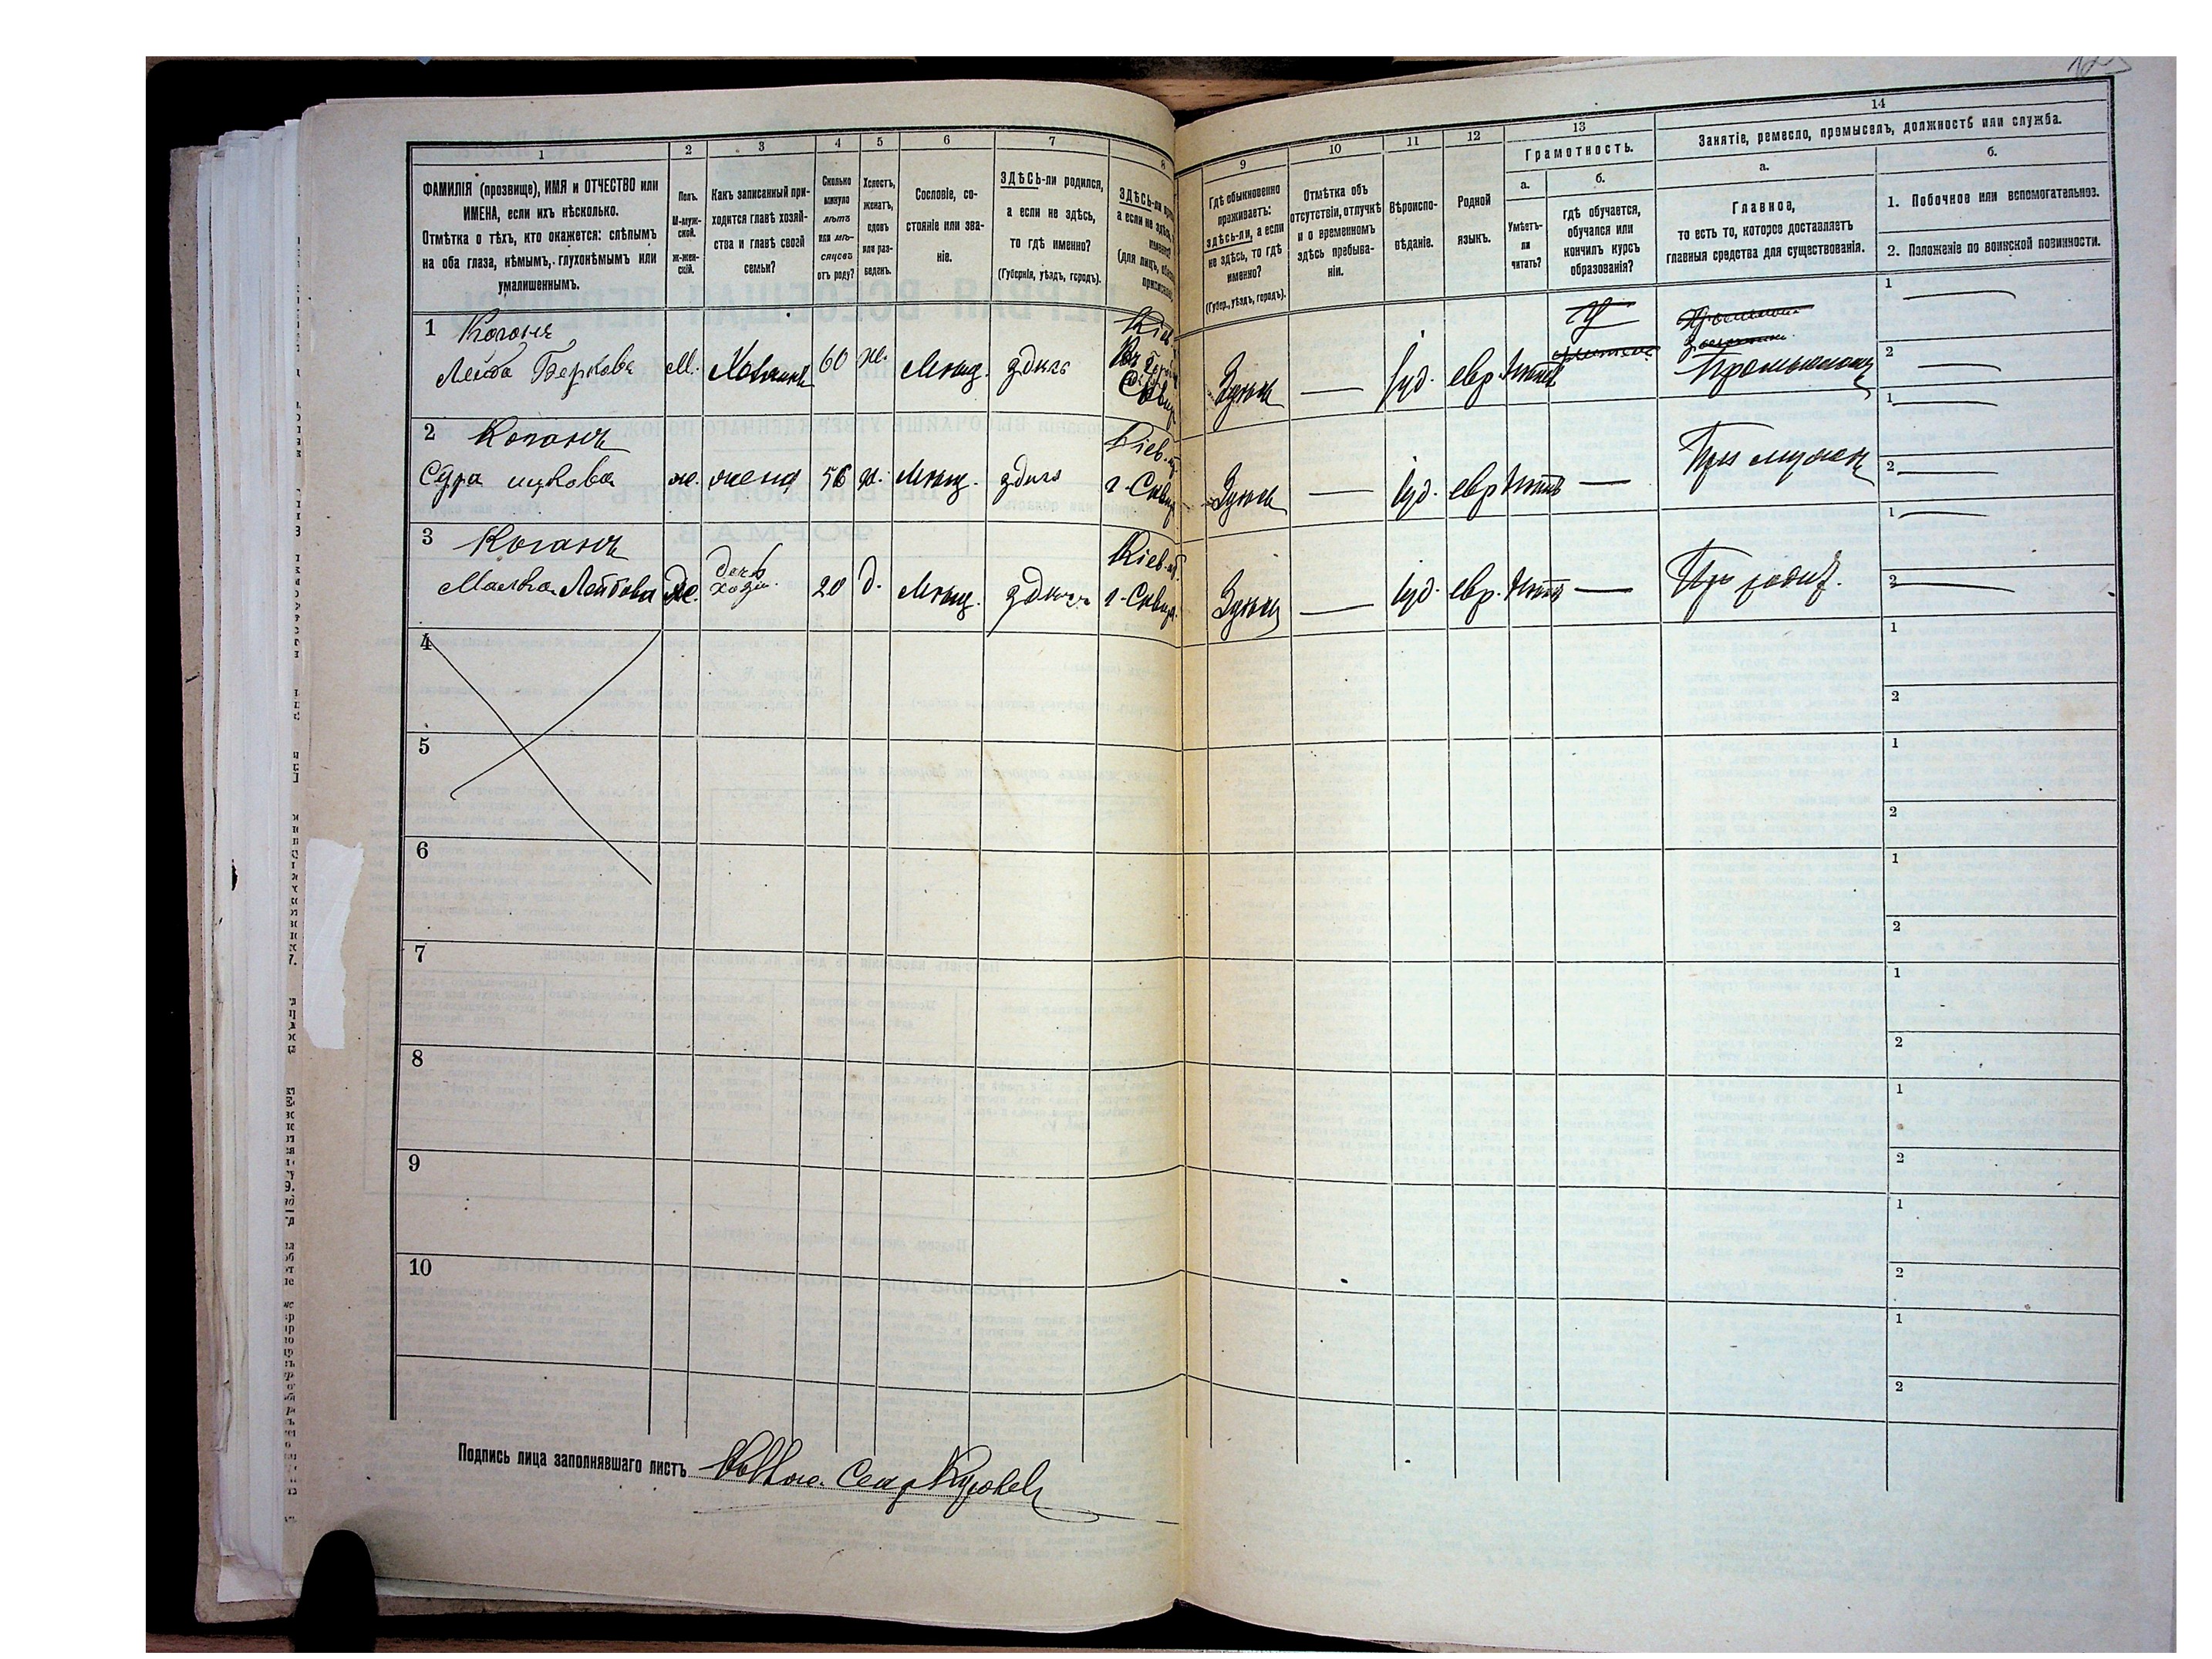 1
2
3
4
5
6
7
8
9
10
11
12
13
14
ФАМИЛІЯ (прозвище), ИМЯ и ОТЧЕСТВО или
ИМЕНА, если ихъ нѣсколько.
Отмѣтка о тѣхъ, кто окажется: слѣпымъ
на оба глаза, нѣмымъ, глухонѣмымъ или
умалишеннымъ.
Полъ.
М-муж-
ской.
ж-жен-
скій.
Какъ записанный при-
ходится главѣ хозяй-
ства и главѣ своей
семьи?
Сколько
минуло
лѣтъ
или мѣ-
сяцевъ
отъ роду?
Холостъ,
женатъ,
вдовъ
или раз-
веденъ.
Сословіе, со-
стояніе или зва-
ніе.
ЗДѢСЬ-ли родился,
а если не здѣсь,
то гдѣ именно?
(Губернія, уѣздъ, городъ).
ЗДѢСЬ-ли
а если не здѣсь,
(для лицъ,
Гдѣ обыкновенно
проживаетъ:
здѣсь-ли, а если
не здѣсь, то гдѣ
именно?
(Губер., уѣздъ, городъ).
Отмѣтка объ
отсутствіи, отлучкѣ
и о временномъ
здѣсь пребыва-
ніи.
Вѣроиспо-
вѣданіе.
Родной
языкъ.
Грамотность.
а.
Умѣетъ-
ли
читать?
б.
гдѣ обучается,
обучался или
кончилъ курсъ
образованія?
Занятіе, ремесло, промыселъ, должность или служба.
а.
Главное,
то есть то, которое доставляетъ
главныя средства для существованія.
б.
1. Побочное или вспомогательное.
2. Положеніе по воинской повинности.
1 Коганъ
Лейба Берковъ М. Хозяинъ 60 ж. Мѣщ. здѣсь
Здѣсь — Іуд. евр.
1
2
2 Коганъ
ж. жена 56 ж. Мѣщ. здѣсь Кіев.
г. Сквир Здѣсь — Іуд. евр — При мужѣ
1
2
3 Коганъ
Малка Лейбова ж. дочь хозяи. 20 д. Мѣщ. здѣсь Кіев.
г. Сквир. Здѣсь — Іуд. евр. — При родит.
1
2
4
1
2
5
1
2
6
1
2
7
1
2
8
1
2
9
1
2
10
1
2
Подпись лица заполнявшаго листъ